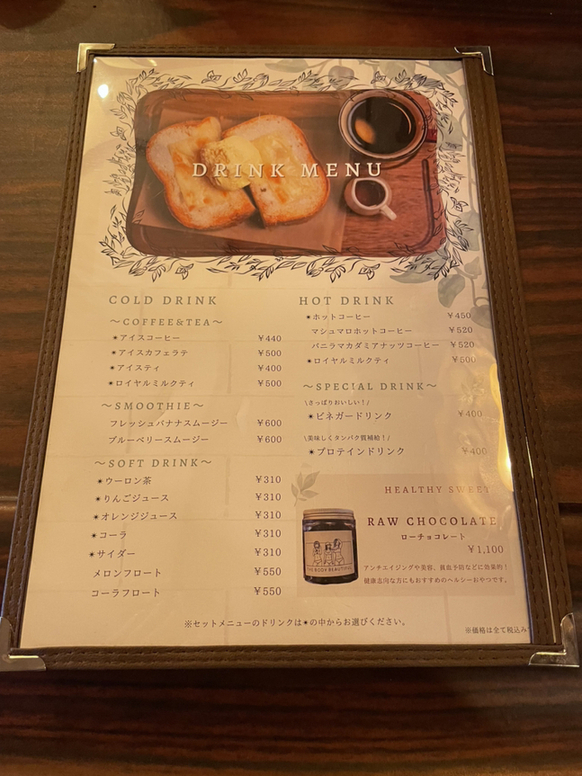 DRINK MENU
COLD DRINK
～COFFEE&TEA～
✷アイスコーヒー ¥440
✷アイスカフェラテ ¥500
✷アイスティ ¥400
✷ロイヤルミルクティ ¥500
～SMOOTHIE～
フレッシュバナナスムージー ¥600
ブルーベリースムージー ¥600
～SOFT DRINK～
✷ウーロン茶 ¥310
✷りんごジュース ¥310
✷オレンジジュース ¥310
✷コーラ ¥310
✷サイダー ¥310
メロンフロート ¥550
コーラフロート ¥550
HOT DRINK
✷ホットコーヒー ¥450
マシュマロホットコーヒー ¥520
バニラマカダミアナッツコーヒー ¥520
✷ロイヤルミルクティ ¥500
～SPECIAL DRINK～
\さっぱりおいしい！/
✷ビネガードリンク ¥400
\美味しくタンパク質補給！/
✷プロテインドリンク ¥400
HEALTHY SWEET
RAW CHOCOLATE
ローチョコレート
¥1,100
アンチエイジングや美容、貧血予防などに効果的！
健康志向な方にもおすすめのヘルシーおやつです。
THE BODY BEAUTIFUL
※セットメニューのドリンクは✷の中からお選びください。
※価格は全て税込み